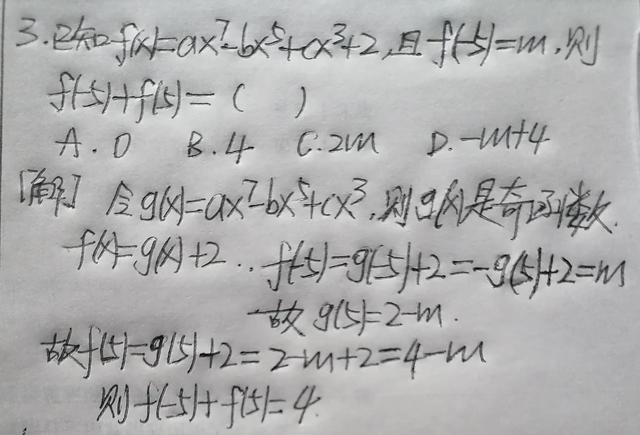 3.已知f(x)=ax⁷-bx⁵+cx³+2,且f(-5)=m,则
f(-5)+f(5)=( )
A.0 B.4 C.2m D.-m+4
[解] 令g(x)=ax⁷-bx⁵+cx³,则g(x)是奇函数.
f(x)=g(x)+2.. f(-5)=g(-5)+2=-g(5)+2=m
故g(5)=2-m.
故f(5)=g(5)+2=2-m+2=4-m
则f(-5)+f(5)=4.